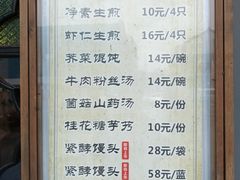 净素生煎 10元/4只
虾仁生煎 16元/4只
荠菜馄饨 14元/碗
牛肉粉丝汤 14元/碗
菌菇山药汤 8元/份
桂花糖芋艿 10元/份
紧酵馒头 28元/袋
紧酵馒头 58元/蓝